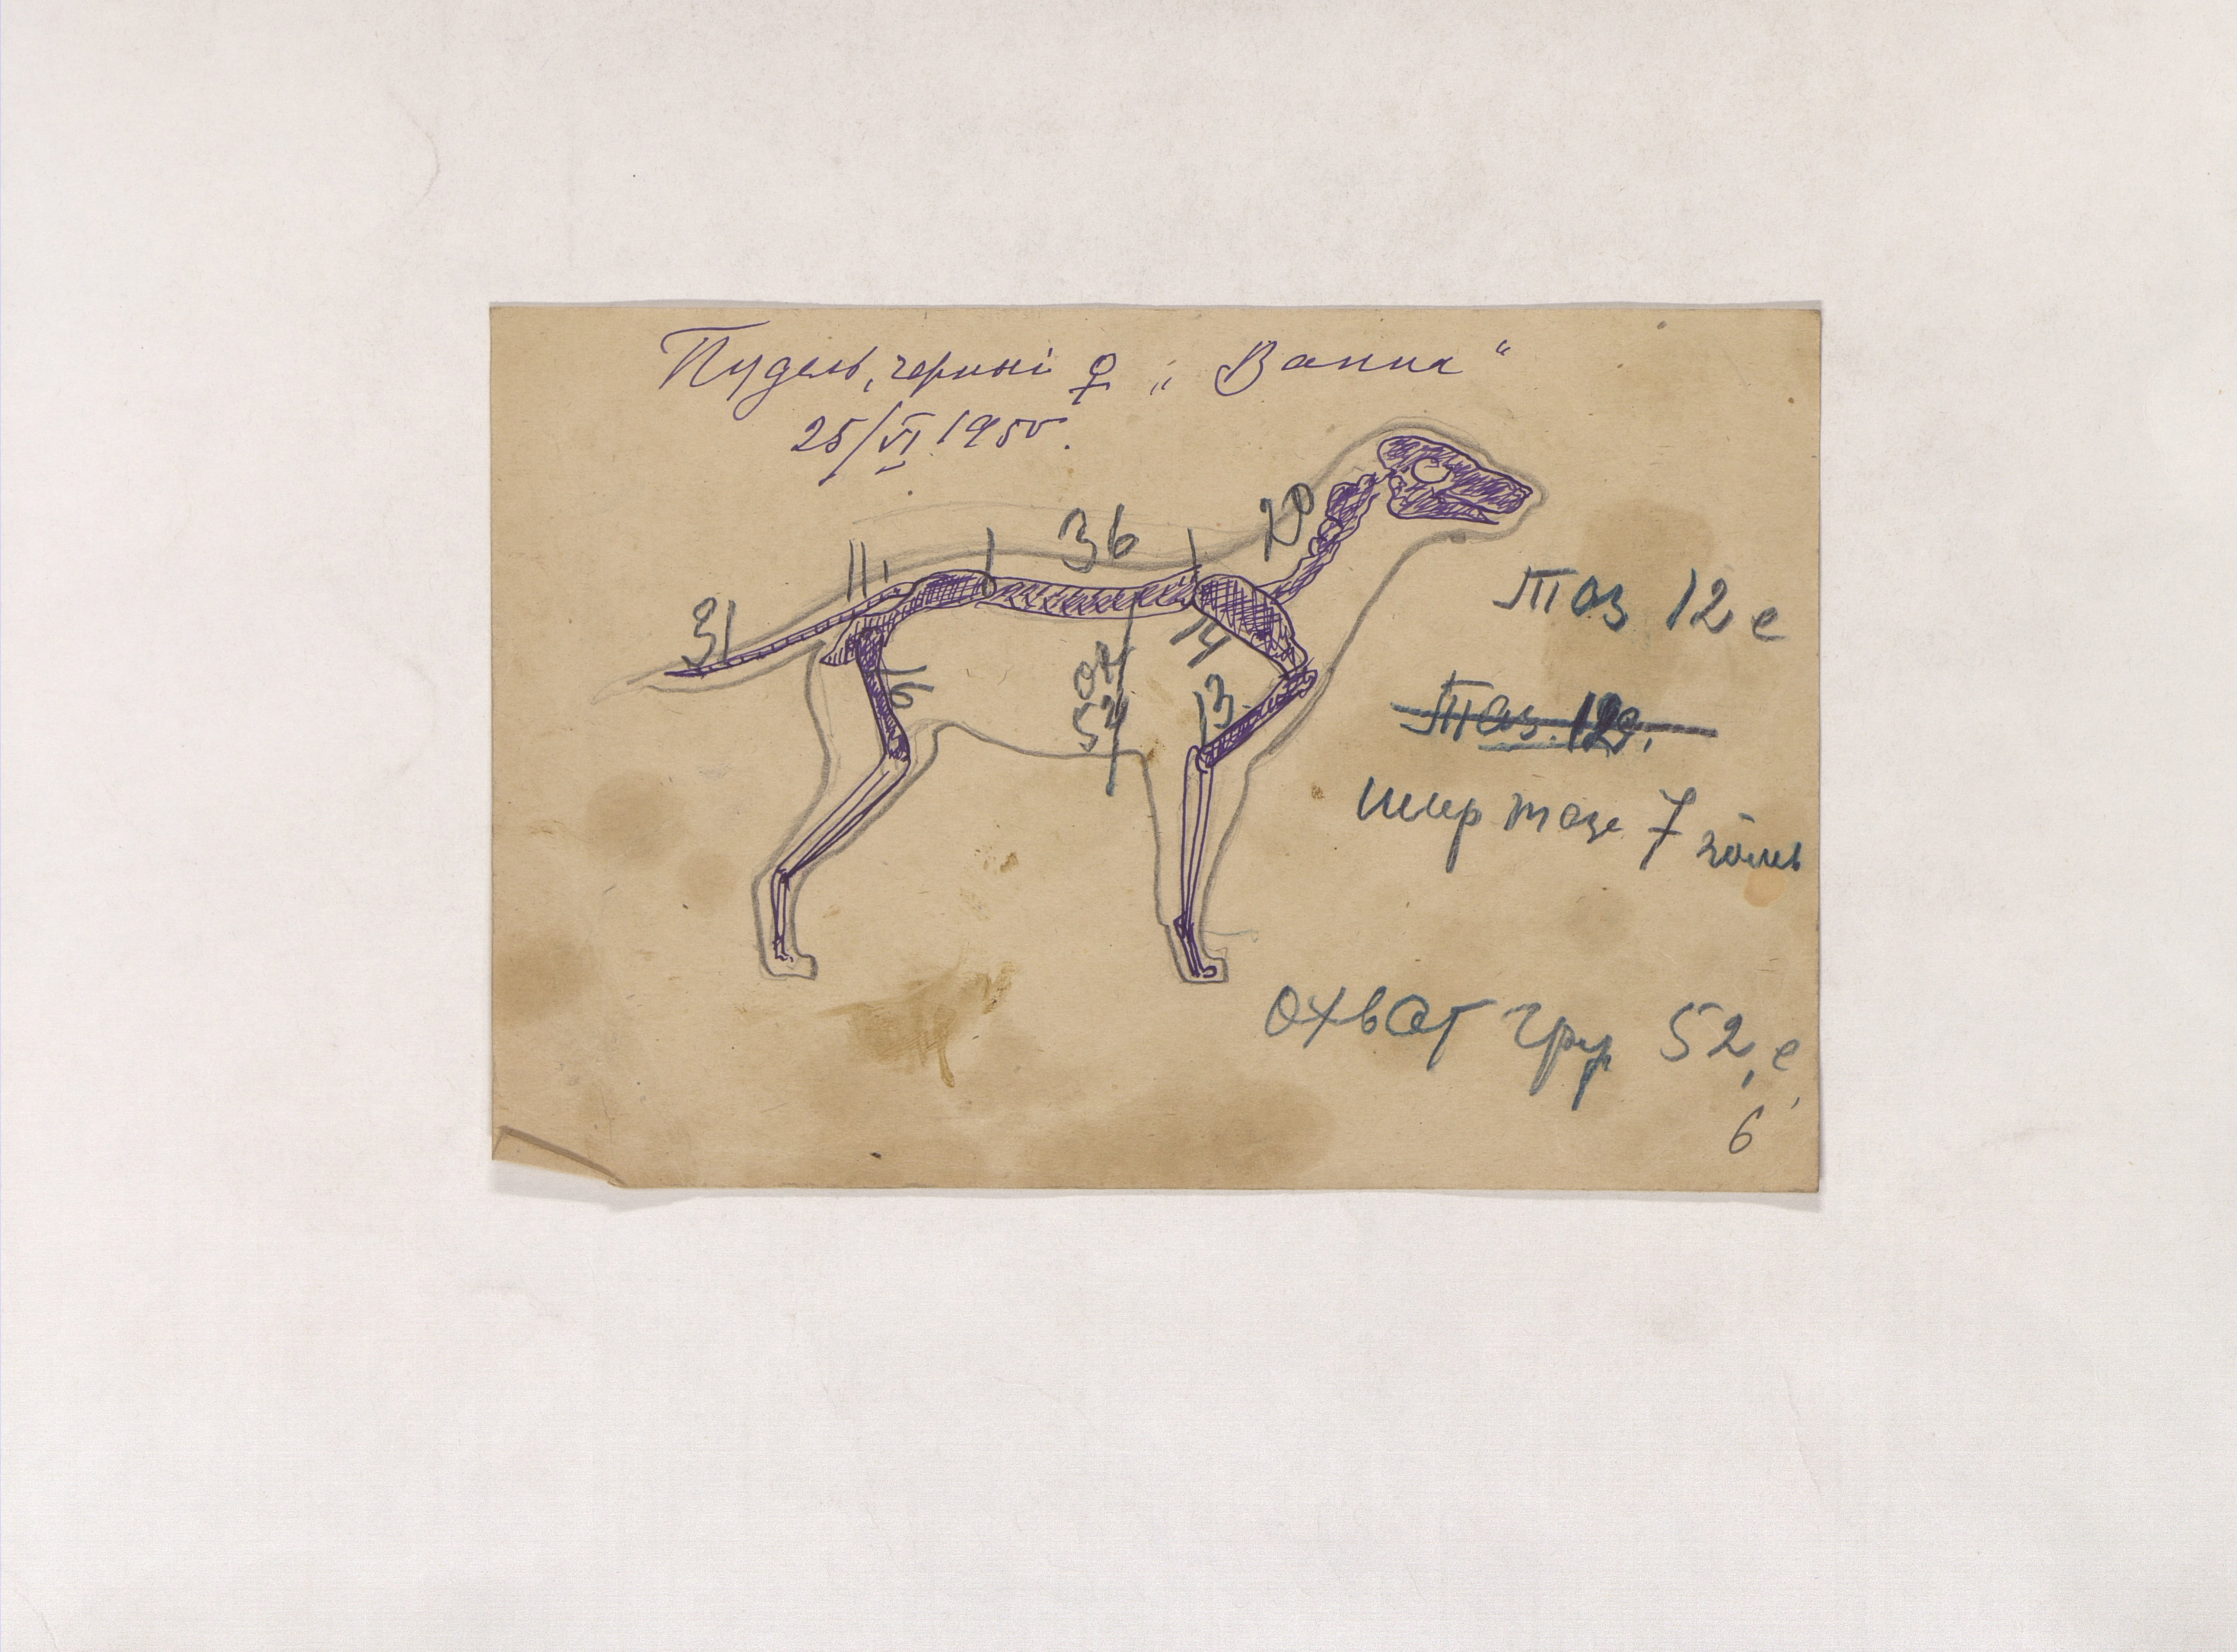 Пудель, черный ♀ „Ванна“
25/VI 1950.
36
20
11
31
14
ох
54
13
Таз 12 с
Таз 12
шир таза 7
охват гру 52, с
6